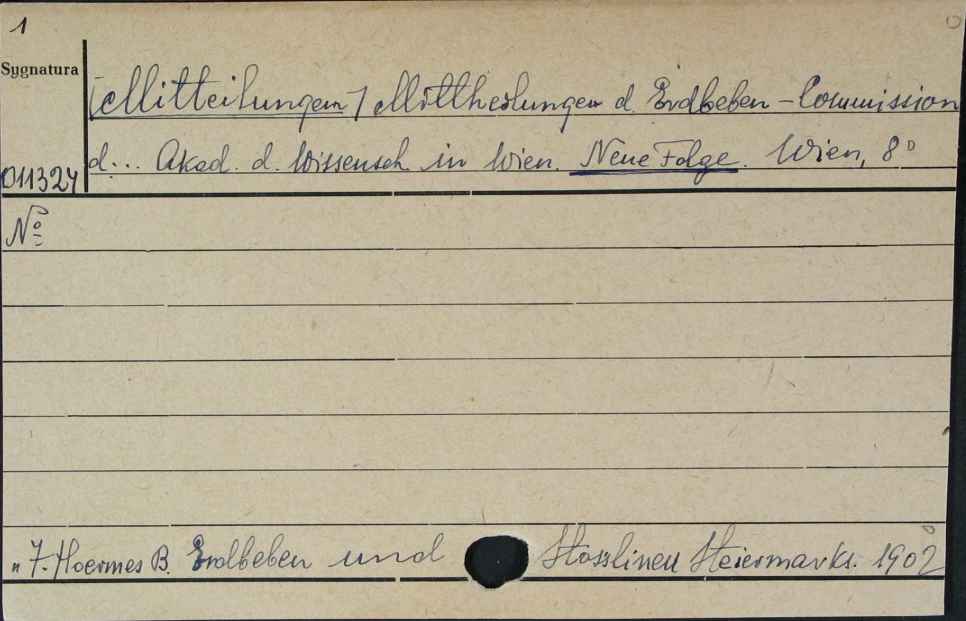 1
Sygnatura
[Mitteilungen] Mittheilungen d. Erdbeben-Commission
d... Akad. d. Wissensch in Wien. Neue Folge. Wien, 8º
011327
Nº
„ 7. Hoernes B. Erdbeben und Stosslinien Steiermarks. 1902